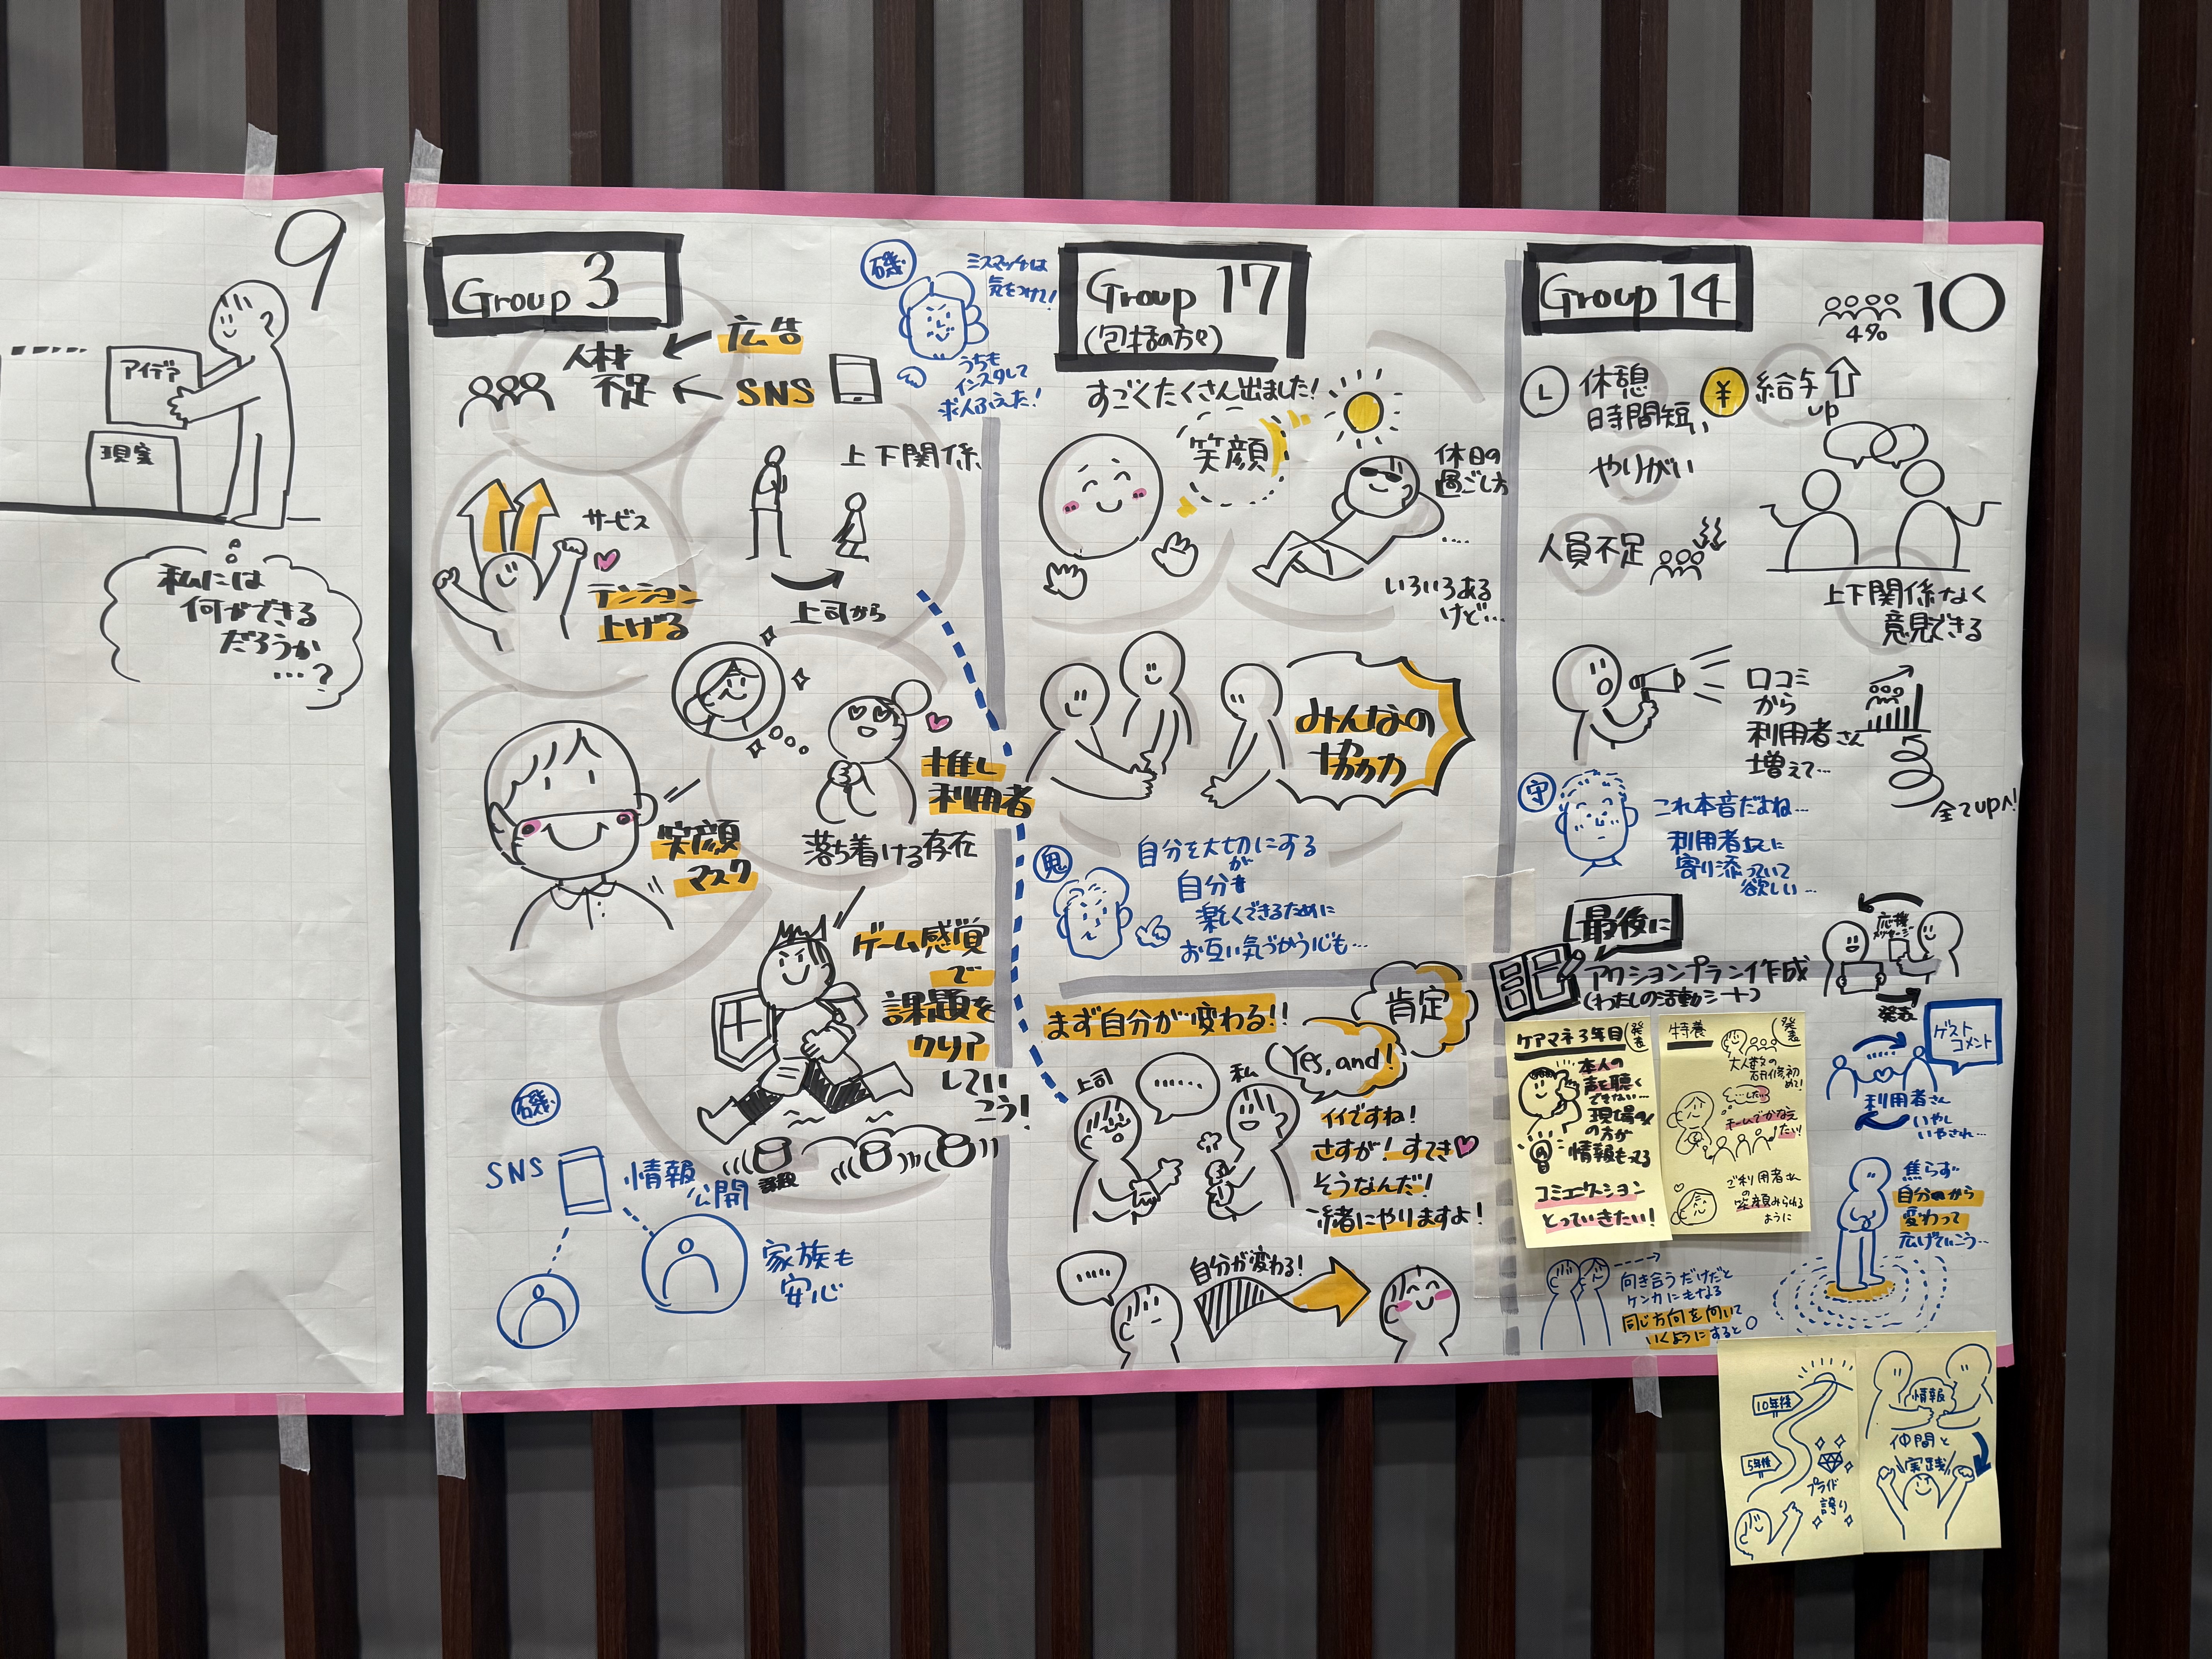 9
アイデア
現実
私には
何ができる
だろうか
…?
Group 3
人材
不足
広告
SNS
磯
ミスマッチは
気をつけて!
うちも
インスタして
求人ふえた!
サービス
テンション
上げる
上下関係
上司から
推し
利用者
落ち着ける存在
笑顔
マスク
ゲーム感覚
で
課題を
クリア
してい
こう!
課題
磯
SNS
情報
公開
家族も
安心
Group 17
(包括の方々)
すごくたくさん出ました!
笑顔
休日の
過ごし方
....
いろいろある
けど…
みんなの
協力
鬼
自分を大切にする
が
自分も
楽しくできるために
お互い気づかう心も…
まず自分が変わる!!
肯定
Yes, and!
上司
......
私
イイですね!
さすが!すてき♥
そうなんだ!
一緒にやりますよ!
.....
自分が変わる!
Group 14
10
4%
休憩
時間短い
¥
給与
up
やりがい
人員不足
上下関係なく
意見できる
口コミ
から
利用者さん
増えて…
全てup!
守
これ本音だよね…
利用者さんに
寄り添っていて
欲しい…
最後に
アクションプラン作成
(わたしの活動シート)
応援
メッセージ
発表
ケアマネ3年目
発表
本人の
声を聴く
できない…
現場の
の方が
情報もってる
コミュニケーション
とっていきたい!
特養
発表
大人数の
研修初
めて!
…したい
チームでかなえ
たい!
ご利用者さん
の
笑顔みられる
ように
ゲスト
コメント
利用者さん
いやし
いやされ…
焦らず
自分から
変わって
広げていこう…
向き合うだけだと
ケンカにもなる
同じ方向を向いて
いくようにすると○
10年後
5年後
プライド
誇り
情報
仲間と
実践